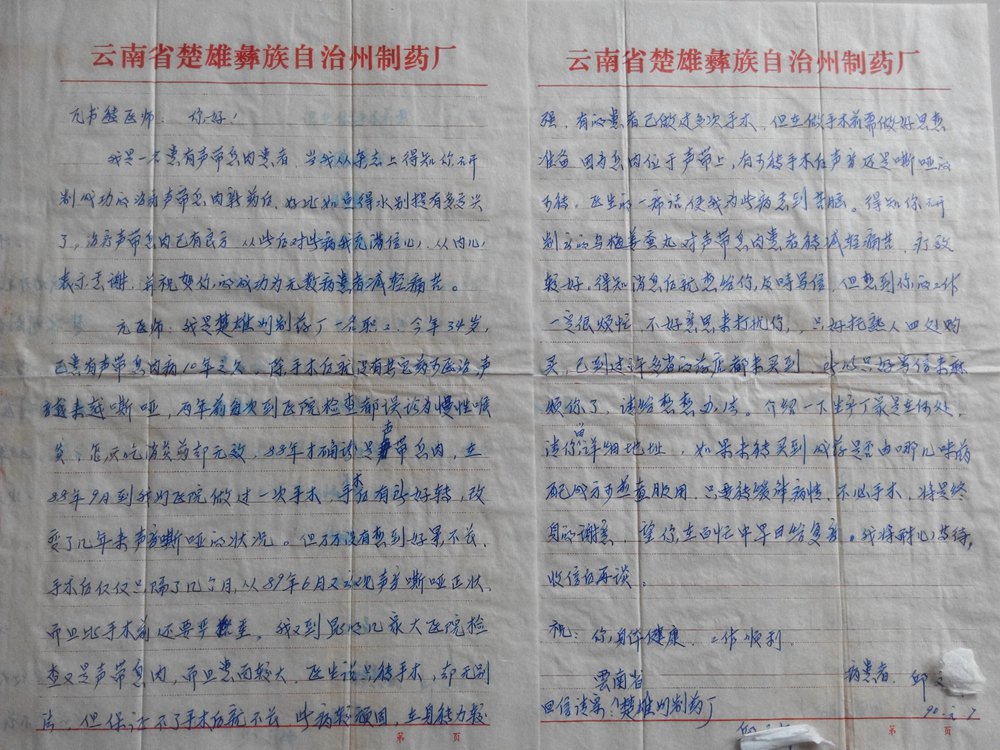 云南省楚雄彝族自治州制药厂
元书德医师: 你好!
我是一名患有声带息肉患者,当我从杂志上得知你研
制成功的治疗声带息肉新药后,好比如鱼得水别提有多高兴
了,治疗声带息肉已有良方 从此后对此病我充满信心,从内心
表示感谢,并祝贺你的成功为无数病患者减轻痛苦。
元医师:我是楚雄州制药厂一名职工,今年34岁,
已患有声带息肉病10年之久,除手术后就没有其它药可医治声
越来越嘶哑,两年前每次到医院检查都误诊为慢性喉
炎,怎么吃消炎药却无效,88年才确诊是声带息肉,在
88年9月到我州医院做过一次手术,手术后有所好转,改
变了几年来声音嘶哑的状况。但万万没有想到好景不长、
手术后仅仅只隔了几个月,从89年6月又出现声音嘶哑症状,
而且比手术前还要严重。我又到昆明几家大医院检
查又是声带息肉,而且患面较大,医生说只能手术,却无别
法,但保证不了手术后就不长 此病较顽固,在身体力较
第 页
云南省楚雄彝族自治州制药厂
强,有的患者已做过多次手术,但在做手术前需做好思想
准备 因为息肉位于声带上,有可能手术后声音还是嘶哑的
可能,医生的一席话使我为此病感到苦脑。得知你研
制的乌梅 丸对声带息肉患者能减轻痛苦,疗效
较好,得知消息后就想给你及时写信,但想到你的工作
一定很烦忙,不好意思来打扰你,只好托熟人四处购
买,已到过许多省的药店都未买到,此后只好写信来麻
烦你了,请给想想办法。介绍一下生产厂家是在何处,
请你告详细地址,如果未能买到成药是否由哪几味药
配成方可煎煮服用,只要能缓解病情,不必手术,将是终
身的谢意,望你在百忙中早日给复音。我将耐心等待,
收信后再谈。
祝:你身体健康,工作顺利。
云南省 病患者 邱
回信请寄:楚雄州制药厂 90.2.7
第 页